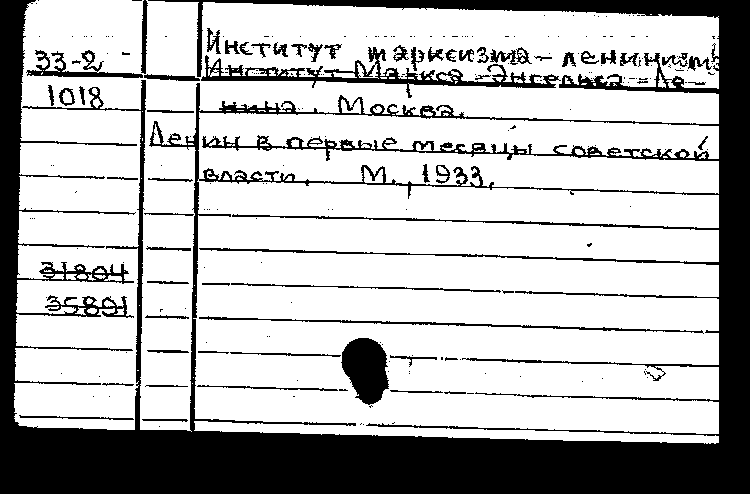 Институт марксизма-ленинизма
33-2
Институт Маркса-Энгельса-Ле-
1018
нина. Москва.
Ленин в первые месяцы советской
власти. М., 1933.
31804
35891